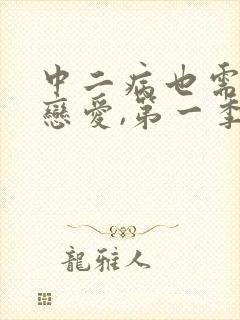 中二病也需
戀愛,第一季
龍雅人